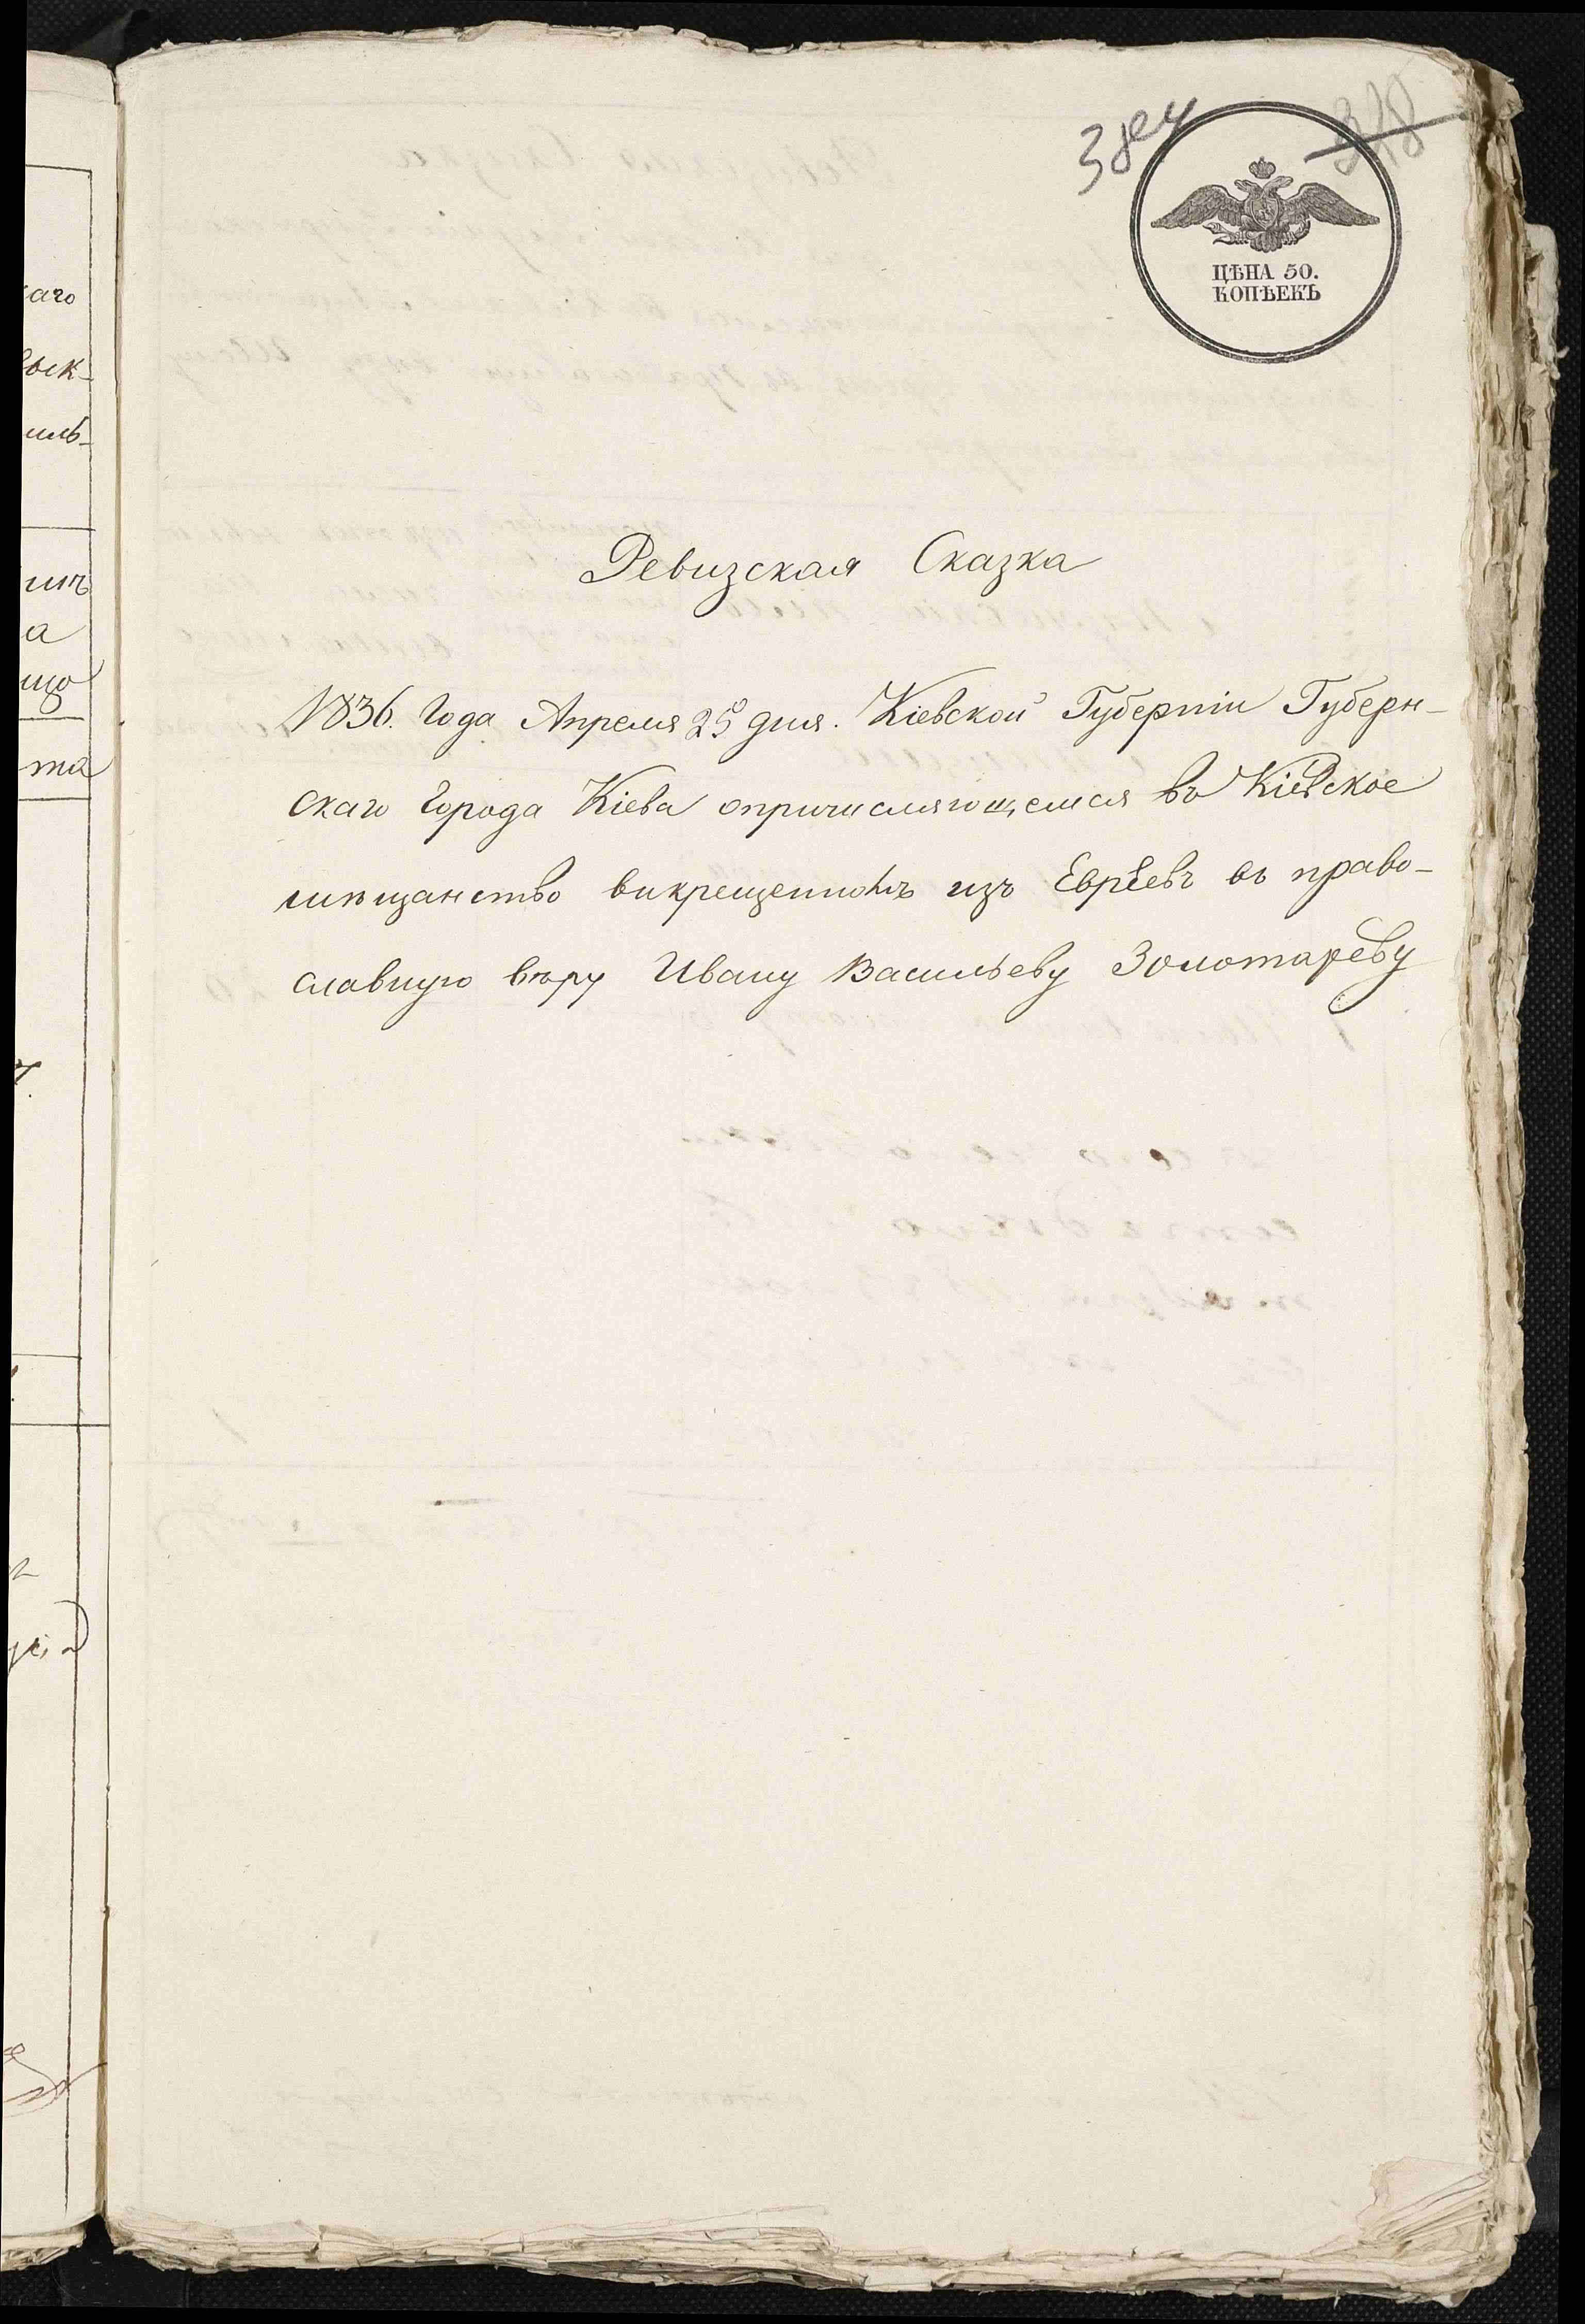 ЦѢНА 50.
КОПѢЕКЪ
Ревизская Сказка
1836. Года Апреля 25 дня. Кіевской Губерніи Губерн-
скаго Города Кіева опричисляющемся во Кіевское
мѣщанство викрещенномъ изъ Евреевъ въ право-
славную вѣру Ивану Васильеву Золотареву
аго
вск-
иль-
инъ
а
що
та